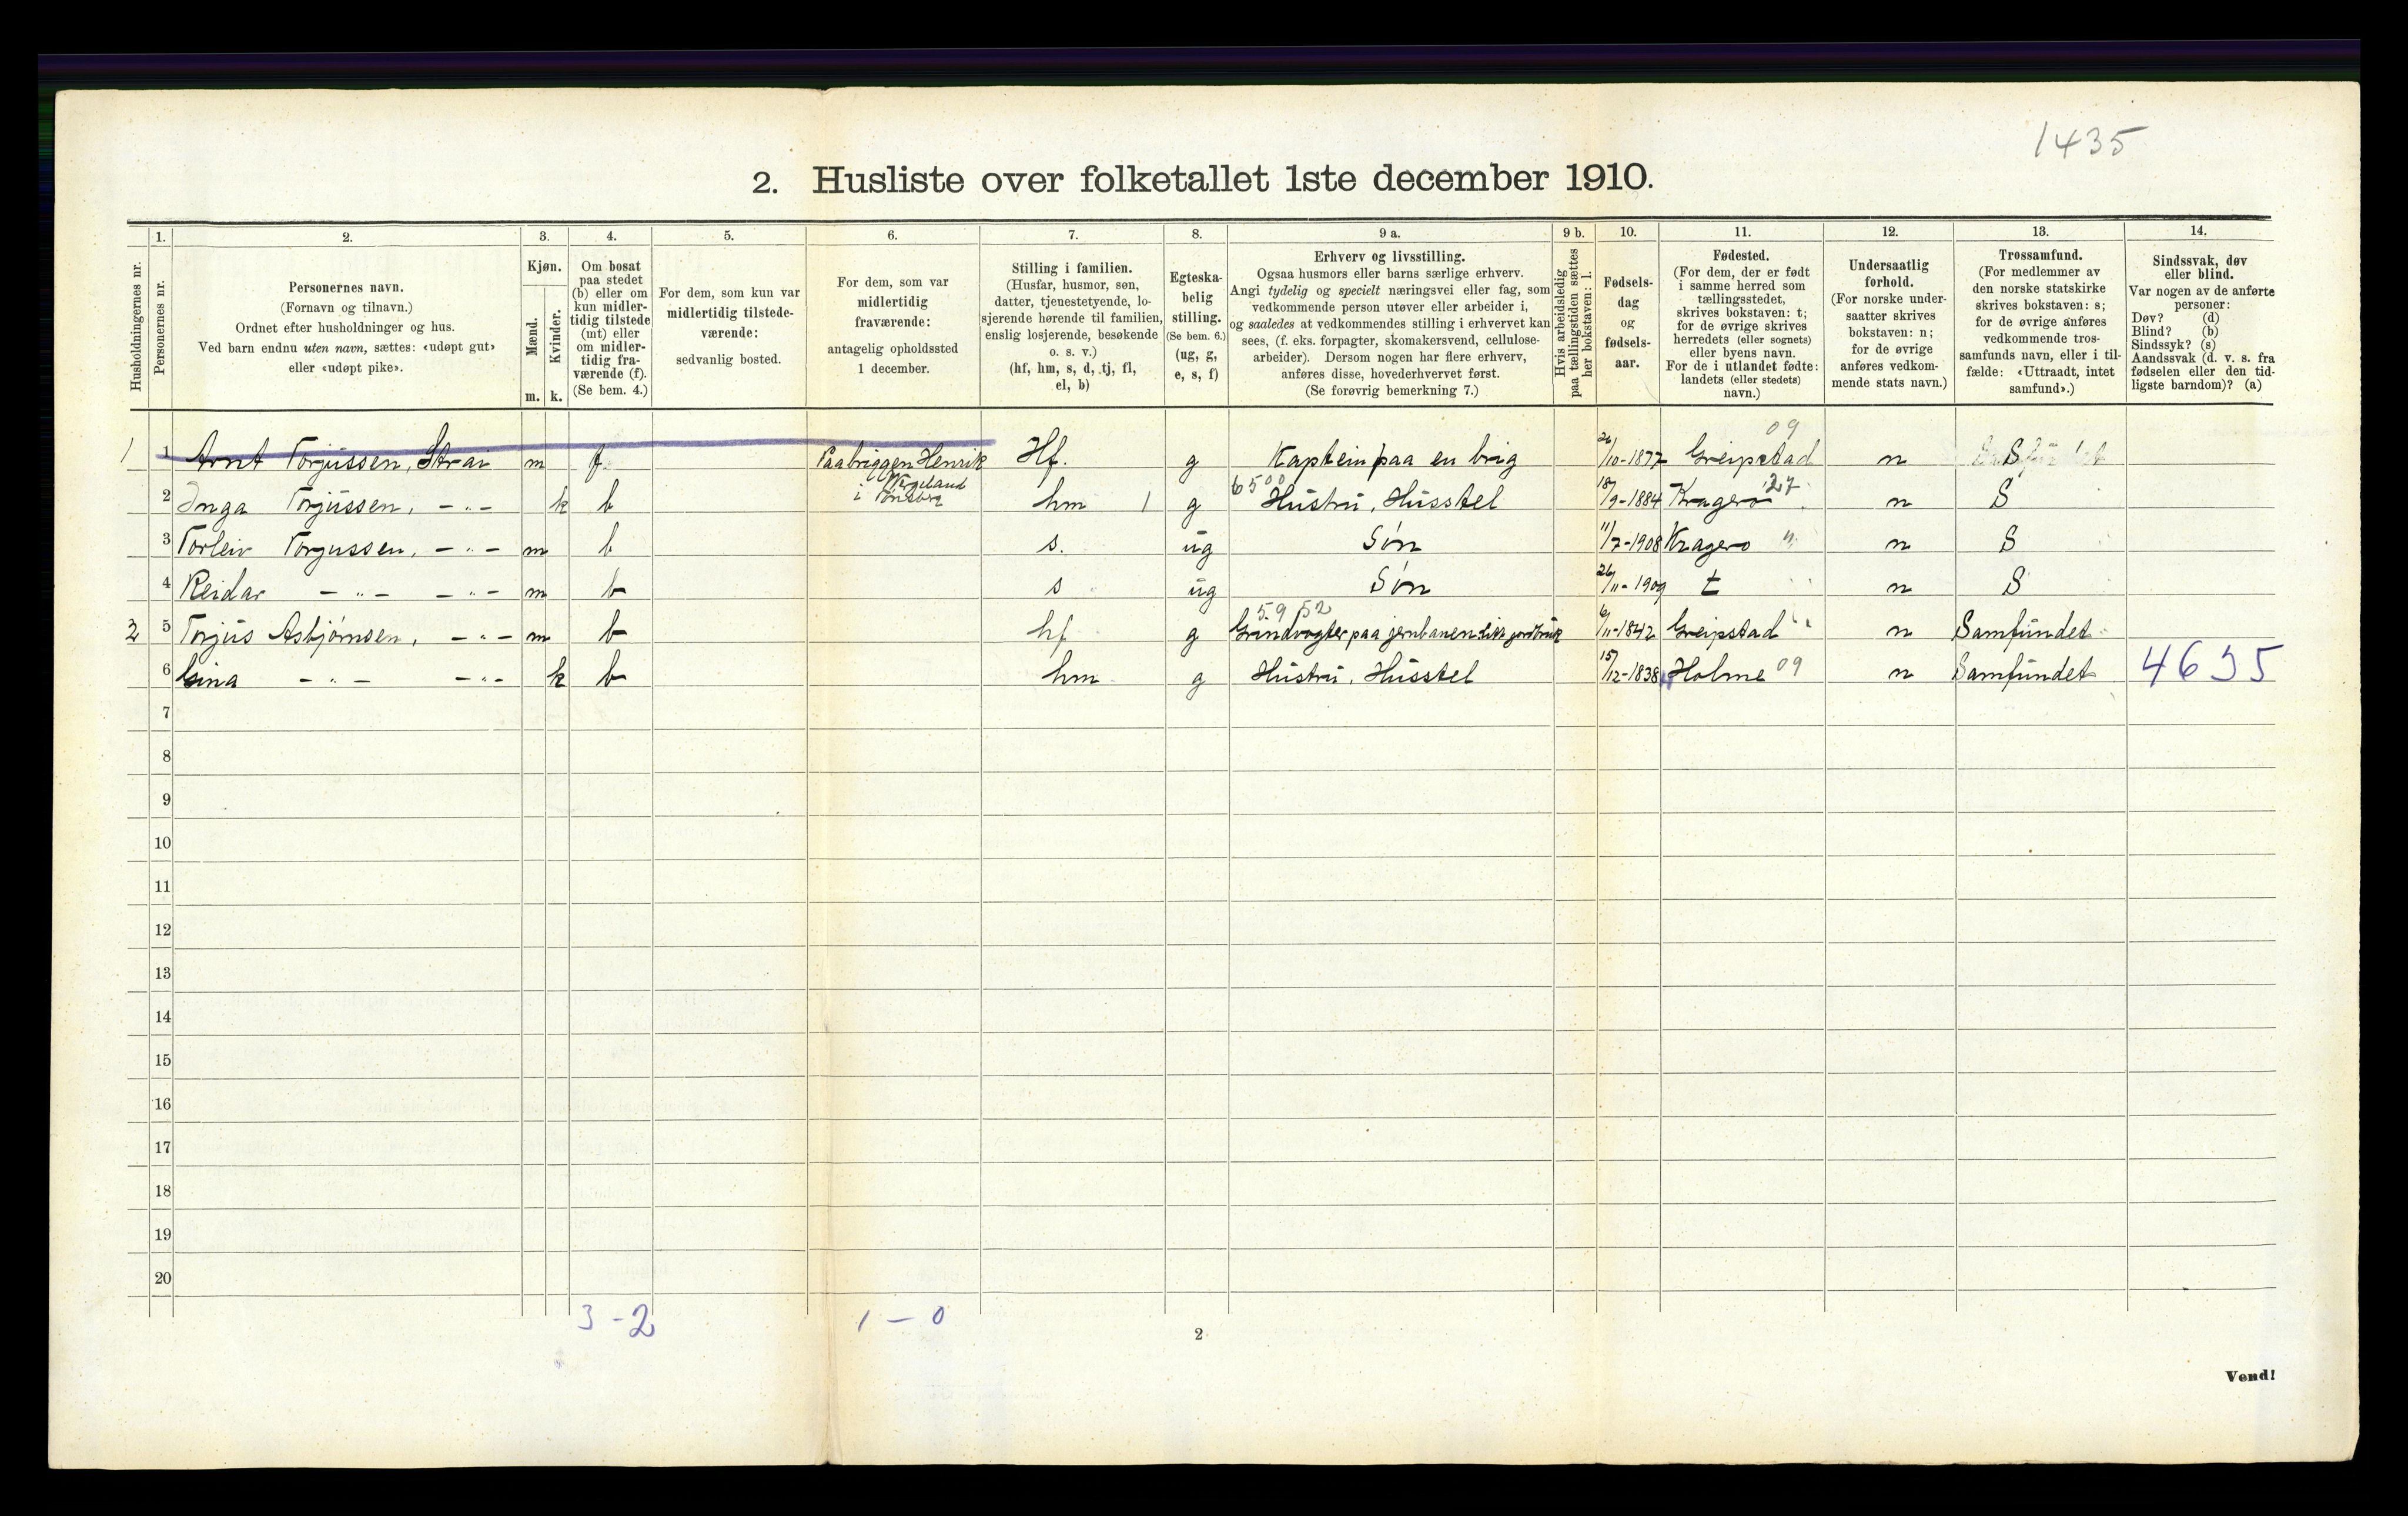 1435
2. Husliste over folketallet 1ste december 1910.
Husholdningernes nr.
1.
Personernes nr.
2.
Personernes navn.
(Fornavn og tilnavn.)
Ordnet efter husholdninger og hus.
Ved barn endnu uten navn, sættes: «udøpt gut»
eller «udøpt pike».
3.
Kjøn.
Mænd.
m.
Kvinder.
k.
4.
Om bosat
paa stedet
(b) eller om
kun midler-
tidig tilstede
(mt) eller
om midler-
tidig fra-
værende (f).
(Se bem. 4.)
5.
For dem, som kun var
midlertidig tilstede-
værende:
sedvanlig bosted.
6.
For dem, som var
midlertidig
fraværende:
antagelig opholdssted
1 december.
7.
Stilling i familien.
(Husfar, husmor, søn,
datter, tjenestetyende, lo-
sjerende hørende til familien,
enslig losjerende, besøkende
o. s. v.)
(hf, hm, s, d, tj, fl,
el, b)
8.
Egteska-
belig
stilling.
(Se bem. 6.)
(ug, g,
e, s, f)
9 a.
Erhverv og livsstilling.
Ogsaa husmors eller barns særlige erhverv.
Angi tydelig og specielt næringsvei eller fag, som
vedkommende person utøver eller arbeider i,
og saaledes at vedkommendes stilling i erhvervet kan
sees, (f. eks. forpagter, skomakersvend, cellulose-
arbeider). Dersom nogen har flere erhverv,
anføres disse, hovederhvervet først.
(Se forøvrig bemerkning 7.)
9 b.
Hvis arbeidsledig
paa tællingstiden sættes
her bokstaven: l.
10.
Fødsels-
dag
og
fødsels-
aar.
11.
Fødested.
(For dem, der er født
i samme herred som
tællingsstedet,
skrives bokstaven: t;
for de øvrige skrives
herredets (eller sognets)
eller byens navn.
For de i utlandet fødte:
landets (eller stedets)
navn.)
12.
Undersaatlig
forhold.
(For norske under-
saatter skrives
bokstaven: n;
for de øvrige
anføres vedkom-
mende stats navn.)
13.
Trossamfund.
(For medlemmer av
den norske statskirke
skrives bokstaven: s;
for de øvrige anføres
vedkommende tros-
samfunds navn, eller i til-
fælde: «Uttraadt, intet
samfund».)
14.
Sindssvak, døv
eller blind.
Var nogen av de anførte
personer:
Døv? (d)
Blind? (b)
Sindssyk? (s)
Aandssvak (d. v. s. fra
fødselen eller den tid-
ligste barndom)? (a)
09
1 1 Arnt Torjussen, Strai m f. Paa briggen Henrik Hf. g Kaptein paa en brig 26/10-1877 Greipstad n S
Wergeland
i Tønsberg
6500 27
2 Inga Torjussen, -"- k b hm 1 g Hustru, Husstel 18/9-1884 Kragerø n S
3 Torleiv Torjussen, -"- m b s. ug Søn 11/7-1908 Kragerø " n S
4 Reidar -"- -"- m b s ug Søn 26/11-1909 t n S
59 52
2 5 Torjus Asbjørnsen, -"- m b hf g Grindvogter paa jernbanen litt jordbruk 6/11-1842 Greipstad n Samfundet
6 Gina -"- -"- k b hm g Hustru, Husstel 15/12-1838 Holme 09 n Samfundet 4635
7
8
9
10
11
12
13
14
15
16
17
18
19
20
3-2 1-0
2
Vend!